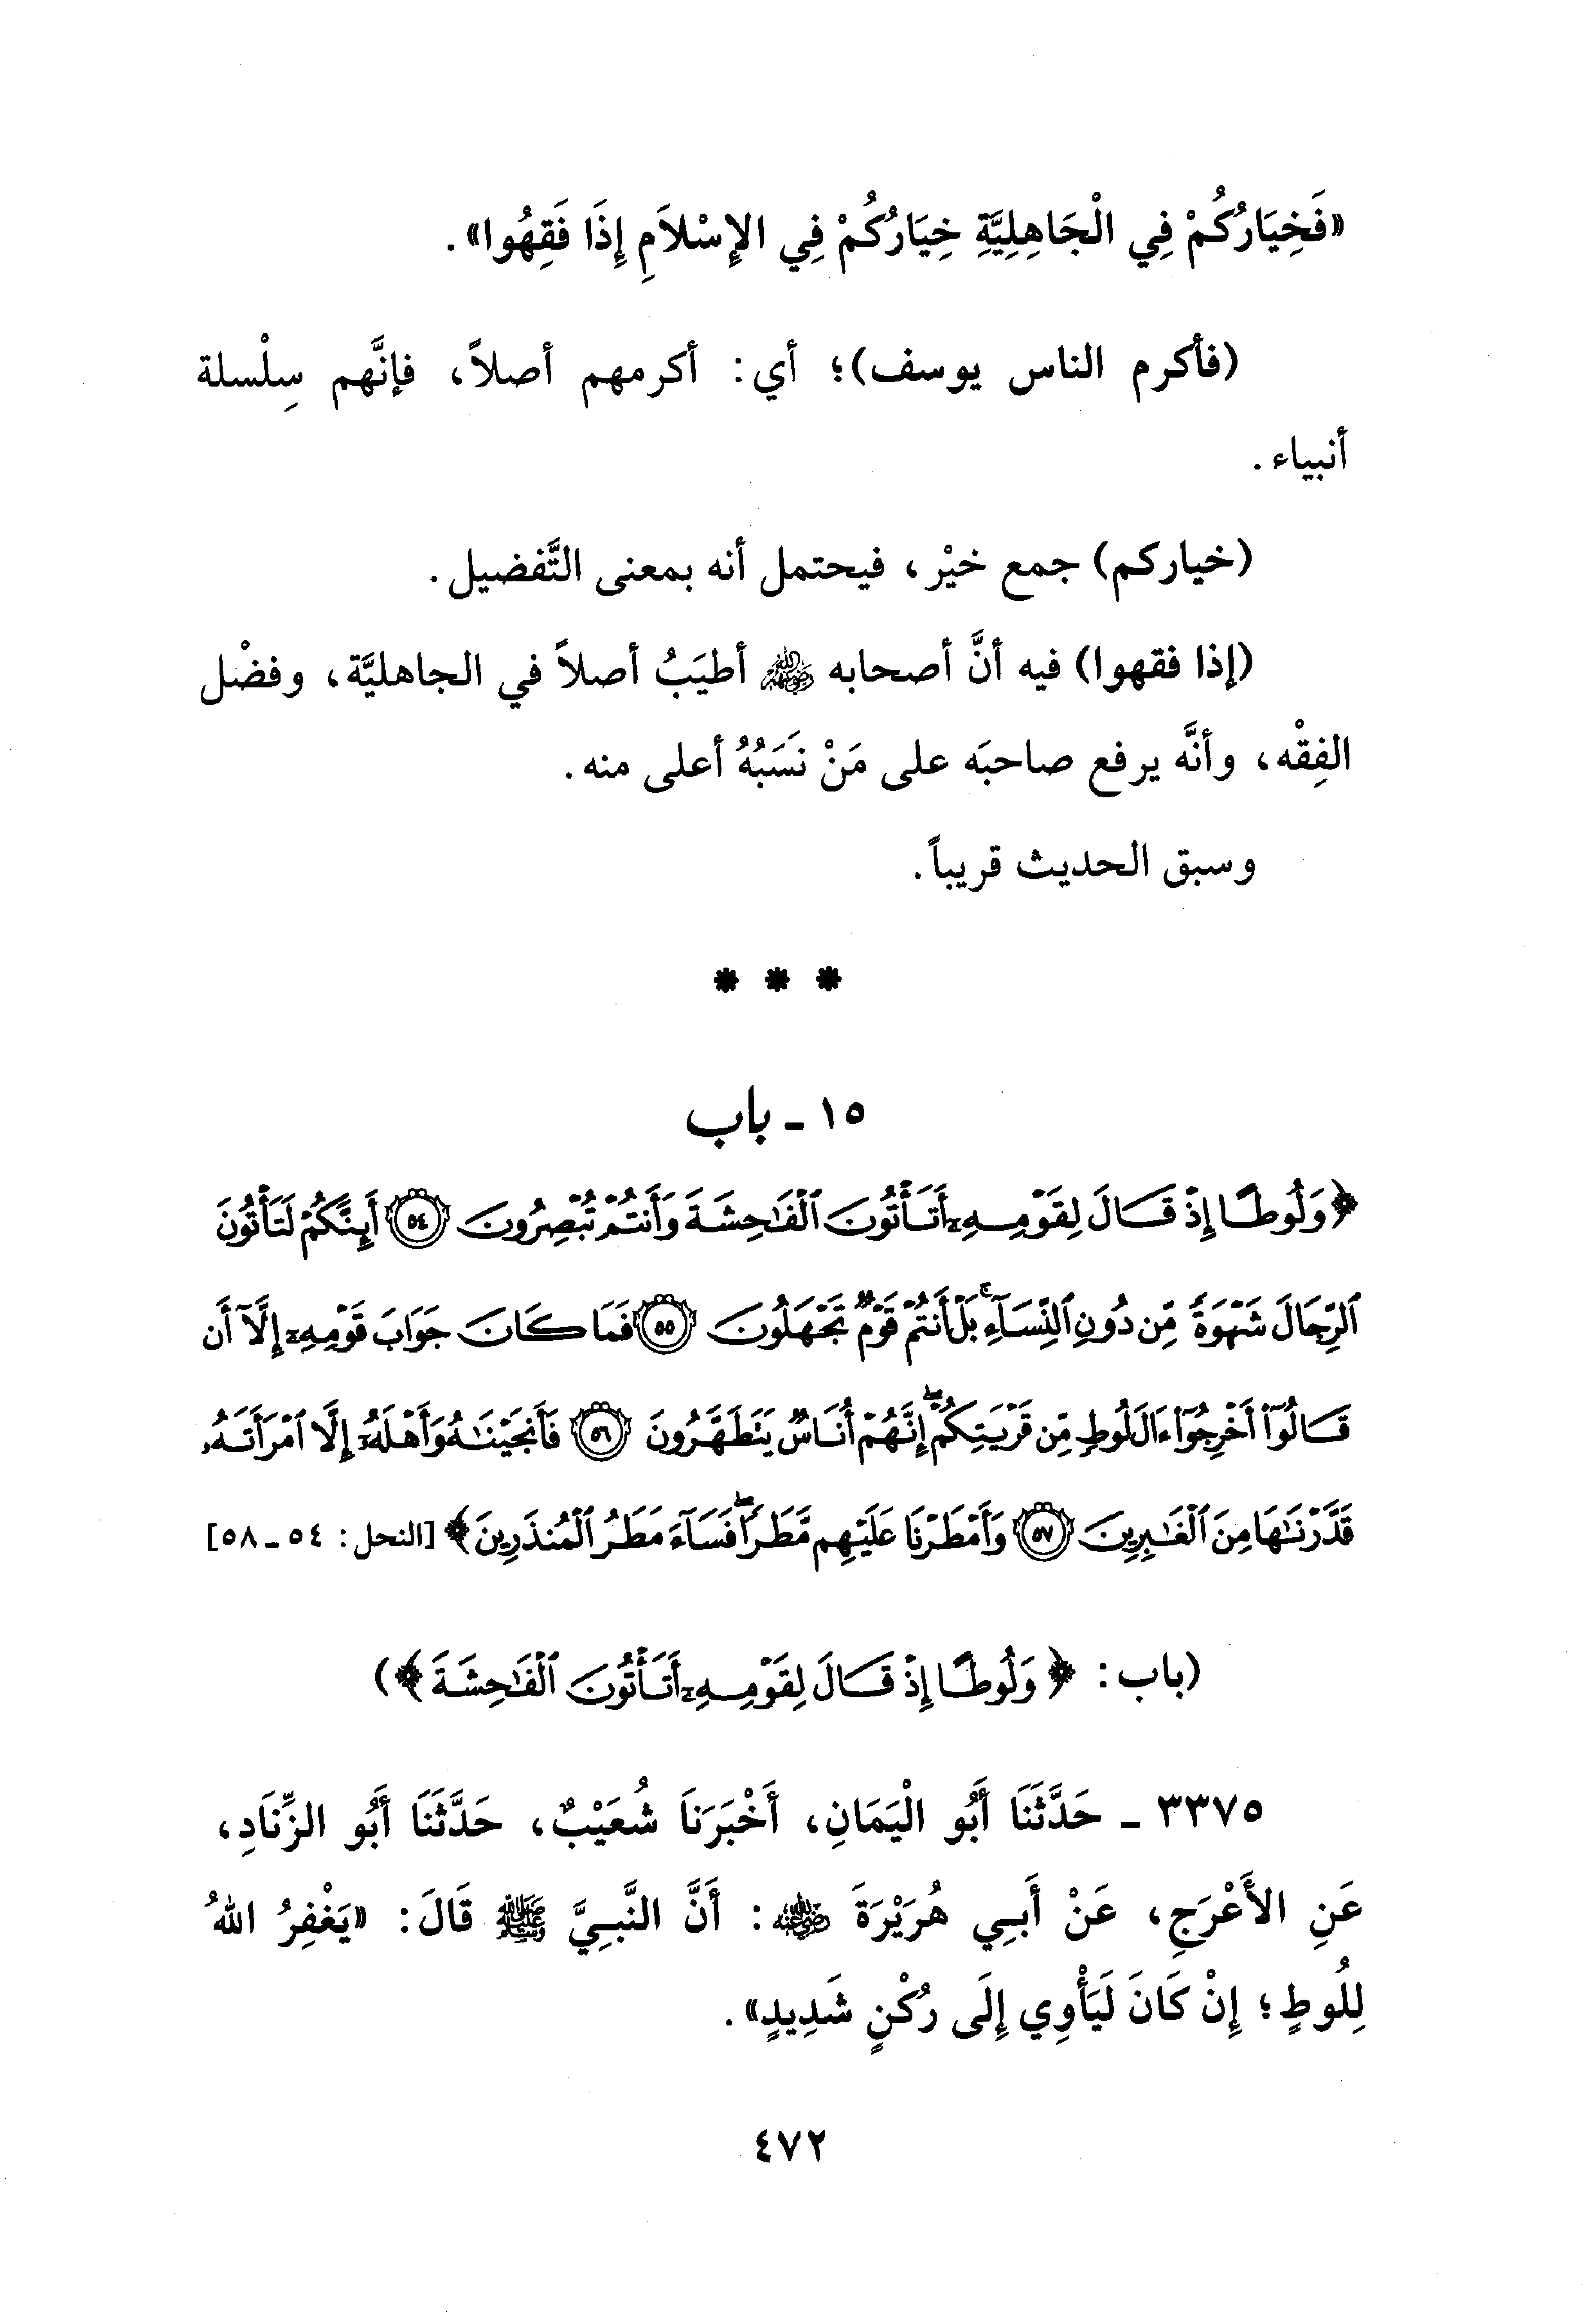 «فَخِيَارُكُمْ فِي الْجَاهِلِيَّةِ خِيَارُكُمْ فِي الإِسْلاَمِ إِذَا فَقِهُوا».
(فأكرم الناس يوسف)؛ أي: أكرمهم أصلاً، فإنَّهم سِلْسلة
أنبياء.
(خياركم) جمع خيْر، فيحتمل أنه بمعنى التَّفضيل.
(إذا فقهوا) فيه أنَّ أصحابه رضي الله عنهم أطيَبُ أصلاً في الجاهليَّة، وفضْل
الفِقْه، وأنَّه يرفع صاحبَه على مَنْ نَسَبُهُ أعلى منه.
وسبق الحديث قريباً.
* * *
١٥ - باب
﴿وَلُوطًا إِذْ قَالَ لِقَوْمِهِۦٓ أَتَأْتُونَ ٱلْفَٰحِشَةَ وَأَنتُمْ تُبْصِرُونَ ۝٥٤ أَئِنَّكُمْ لَتَأْتُونَ
ٱلرِّجَالَ شَهْوَةً مِّن دُونِ ٱلنِّسَآءِ ۚ بَلْ أَنتُمْ قَوْمٌ تَجْهَلُونَ ۝٥٥ فَمَا كَانَ جَوَابَ قَوْمِهِۦٓ إِلَّآ أَن
قَالُوٓا۟ أَخْرِجُوٓا۟ ءَالَ لُوطٍ مِّن قَرْيَتِكُمْ ۖ إِنَّهُمْ أُنَاسٌ يَتَطَهَّرُونَ ۝٥٦ فَأَنجَيْنَٰهُ وَأَهْلَهُۥٓ إِلَّا ٱمْرَأَتَهُۥ
قَدَّرْنَٰهَا مِنَ ٱلْغَٰبِرِينَ ۝٥٧ وَأَمْطَرْنَا عَلَيْهِم مَّطَرًا ۖ فَسَآءَ مَطَرُ ٱلْمُنذَرِينَ﴾ [النحل: ٥٤ - ٥٨]
(باب: ﴿وَلُوطًا إِذْ قَالَ لِقَوْمِهِۦٓ أَتَأْتُونَ ٱلْفَٰحِشَةَ﴾)
٣٣٧٥ - حَدَّثَنَا أَبُو الْيَمَانِ، أَخْبَرَنَا شُعَيْبٌ، حَدَّثَنَا أَبُو الزِّنَادِ،
عَنِ الأَعْرَجِ، عَنْ أَبِي هُرَيْرَةَ رضي الله عنه: أَنَّ النَّبِيَّ ﷺ قَالَ: «يَغْفِرُ اللهُ
لِلُوطٍ؛ إِنْ كَانَ لَيَأْوِي إِلَى رُكْنٍ شَدِيدٍ».
٤٧٢